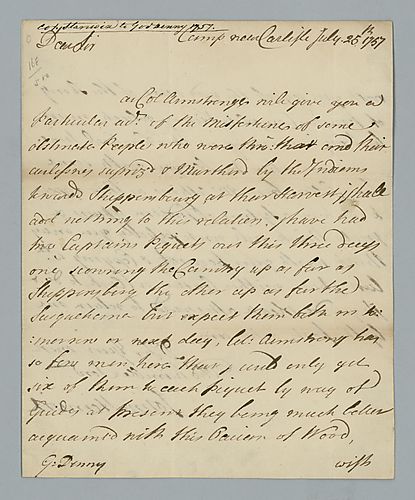 copy Stanwix to Gov Denny 1757.
Camp near Carlisle July 25th 1757
Dear Sir
as Col Armstrong will give you a
Particular act. of the Misfortunes of some
obstinate People who were thro: that and their
carlesness surpriz'd & Murther'd by the Indians
towards Shippensburg at their Harvest I shall
add nothing to this relation. I have had
two Captains Piquets out this three days
one scowring the Country up as far as
Shippensburg the other up as far the
Susquehanna but expect them both in to
morrow or next day, Col: Armstrong has
so few men here that I could only get
six of them to each Piquet by way of
Guides at present they being much better
acquainted with this Pairen of Wood,
G: Denny
with